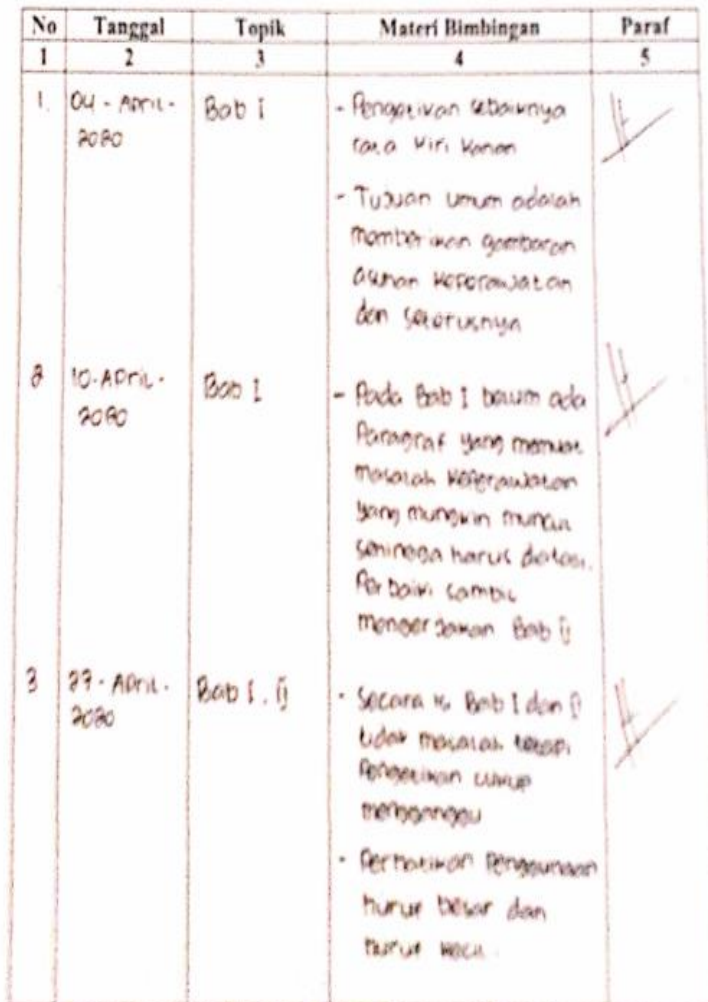 No Tanggal Topik Materi Bimbingan Paraf
1 2 3 4 5
1. 04 - April - Bab I - Pengetikan sebaiknya
2020 rata kiri kanan
- Tujuan umum adalah
memberikan gambaran
asuhan keperawatan
dan seterusnya
2 10 - April - Bab I - Pada Bab I belum ada
2020 Paragraf yang memuat
masalah keperawatan
yang mungkin muncul
sehingga harus diatasi.
Perbaiki sambil
mengerjakan Bab II
3 27 - April - Bab I . II - Secara isi Bab I dan II
2020 tidak masalah tetapi
Pengetikan cukup
mengganggu
- Perhatikan Penggunaan
huruf besar dan
huruf kecil.